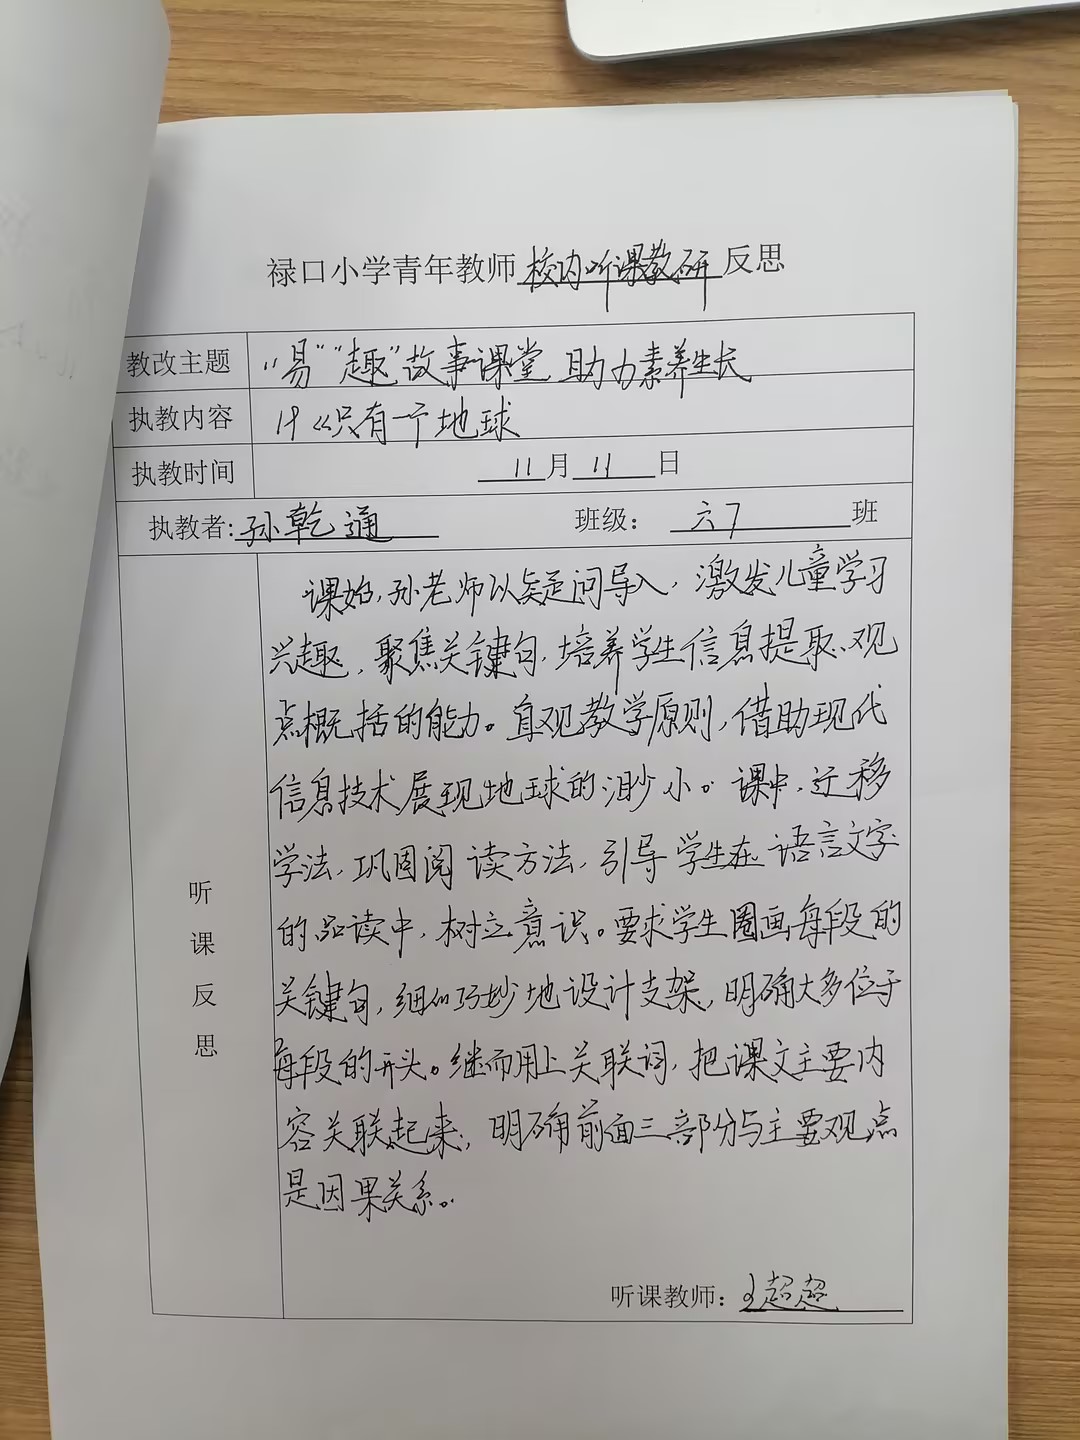 禄口小学青年教师 校内听课教研 反思
教改主题 “易”“趣”故事课堂 助力素养生长
执教内容 19《只有一个地球
执教时间 11月11日
执教者:孙乾通 班级: 六7 班
课始,孙老师以疑问导入,激发儿童学习
兴趣,聚焦关键句,培养学生信息提取、观
点概括的能力。直观教学原则,借助现代
信息技术展现地球的渺小。课中,迁移
学法,巩固阅读方法,引导学生在语言文字
的品读中,树立意识。要求学生圈画每段的
关键句,细心巧妙地设计支架,明确大多位于
每段的开头。继而用上关联词,把课文主要内
容关联起来,明确前面三部分与主要观点
是因果关系。
听课反思
听课教师:王超超